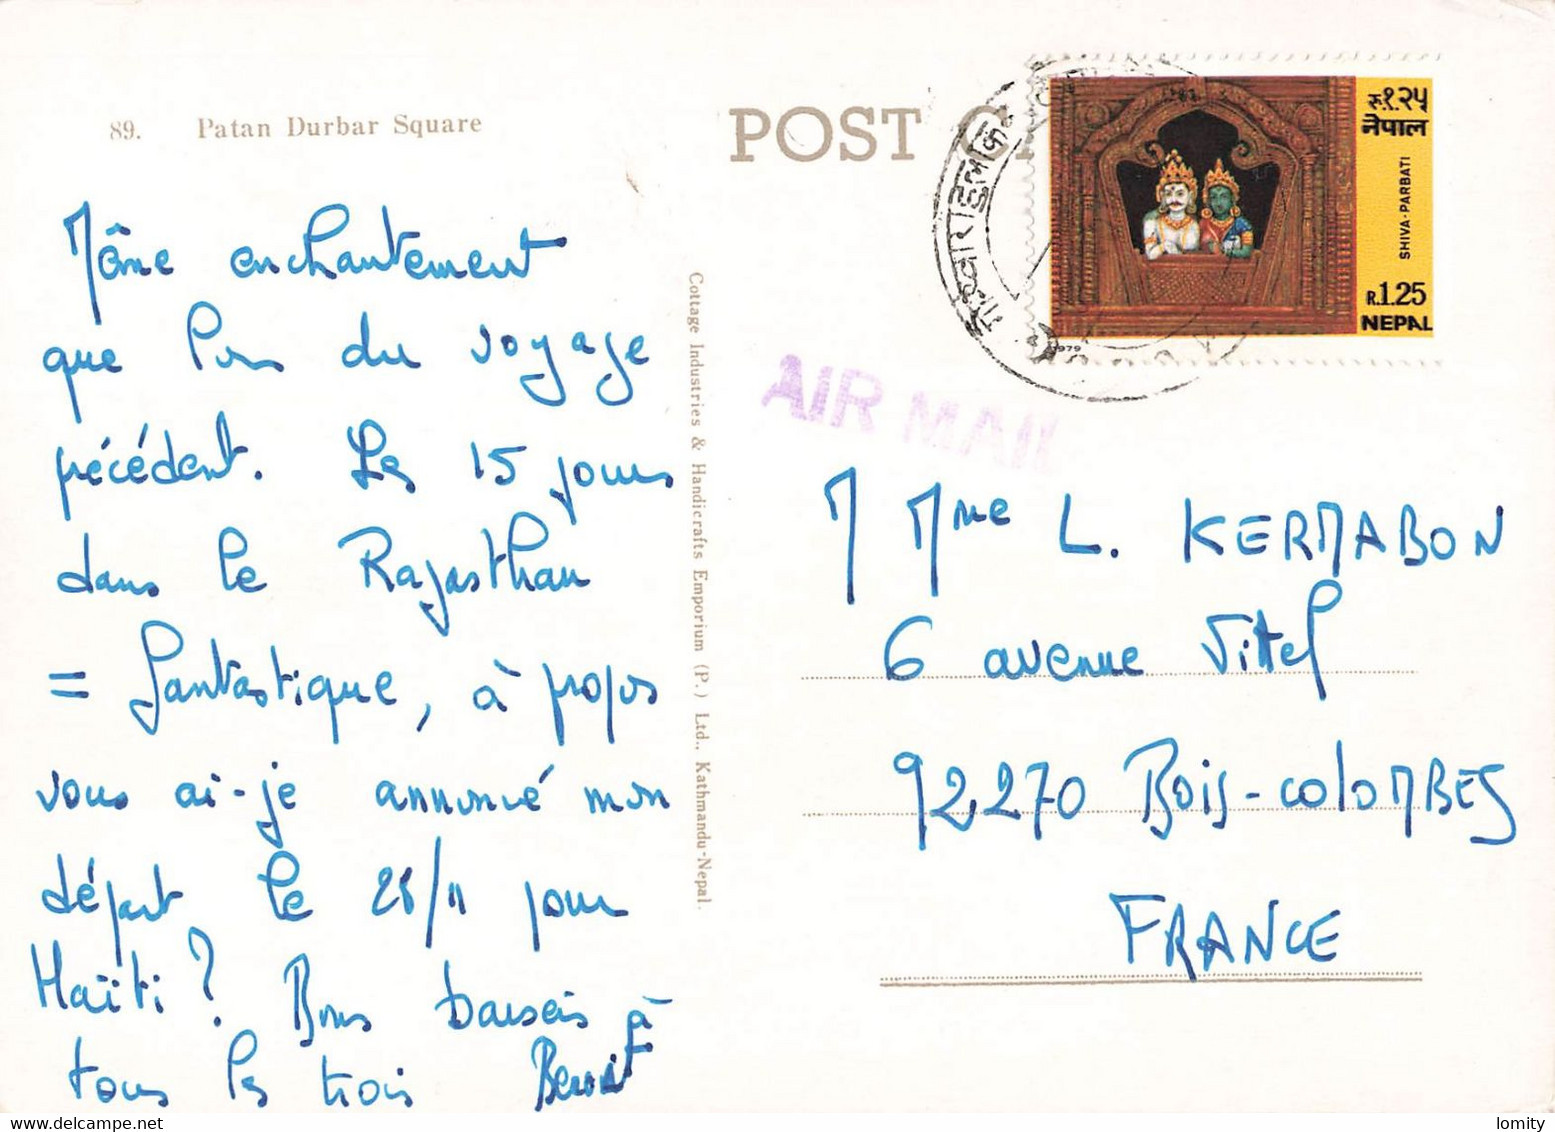 89. Patan Durbar Square
POST
Même enchantement
que lors du voyage
précédent. Les 15 jours
dans le Rajasthan
= fantastique, à propos
vous ai-je annoncé mon
départ le 28/11 pour
Haïti ? Bons baisers à
tous les trois Benoit
Cottage Industries & Handicrafts Emporium (P.) Ltd., Kathmandu-Nepal.
रु.१.२५
नेपाल
SHIVA-PARBATI
R.1.25
NEPAL
1979
AIR MAIL
M Mme L. KERMABON
6 avenue Vittel
92270 Bois-colombes
FRANCE
lomity